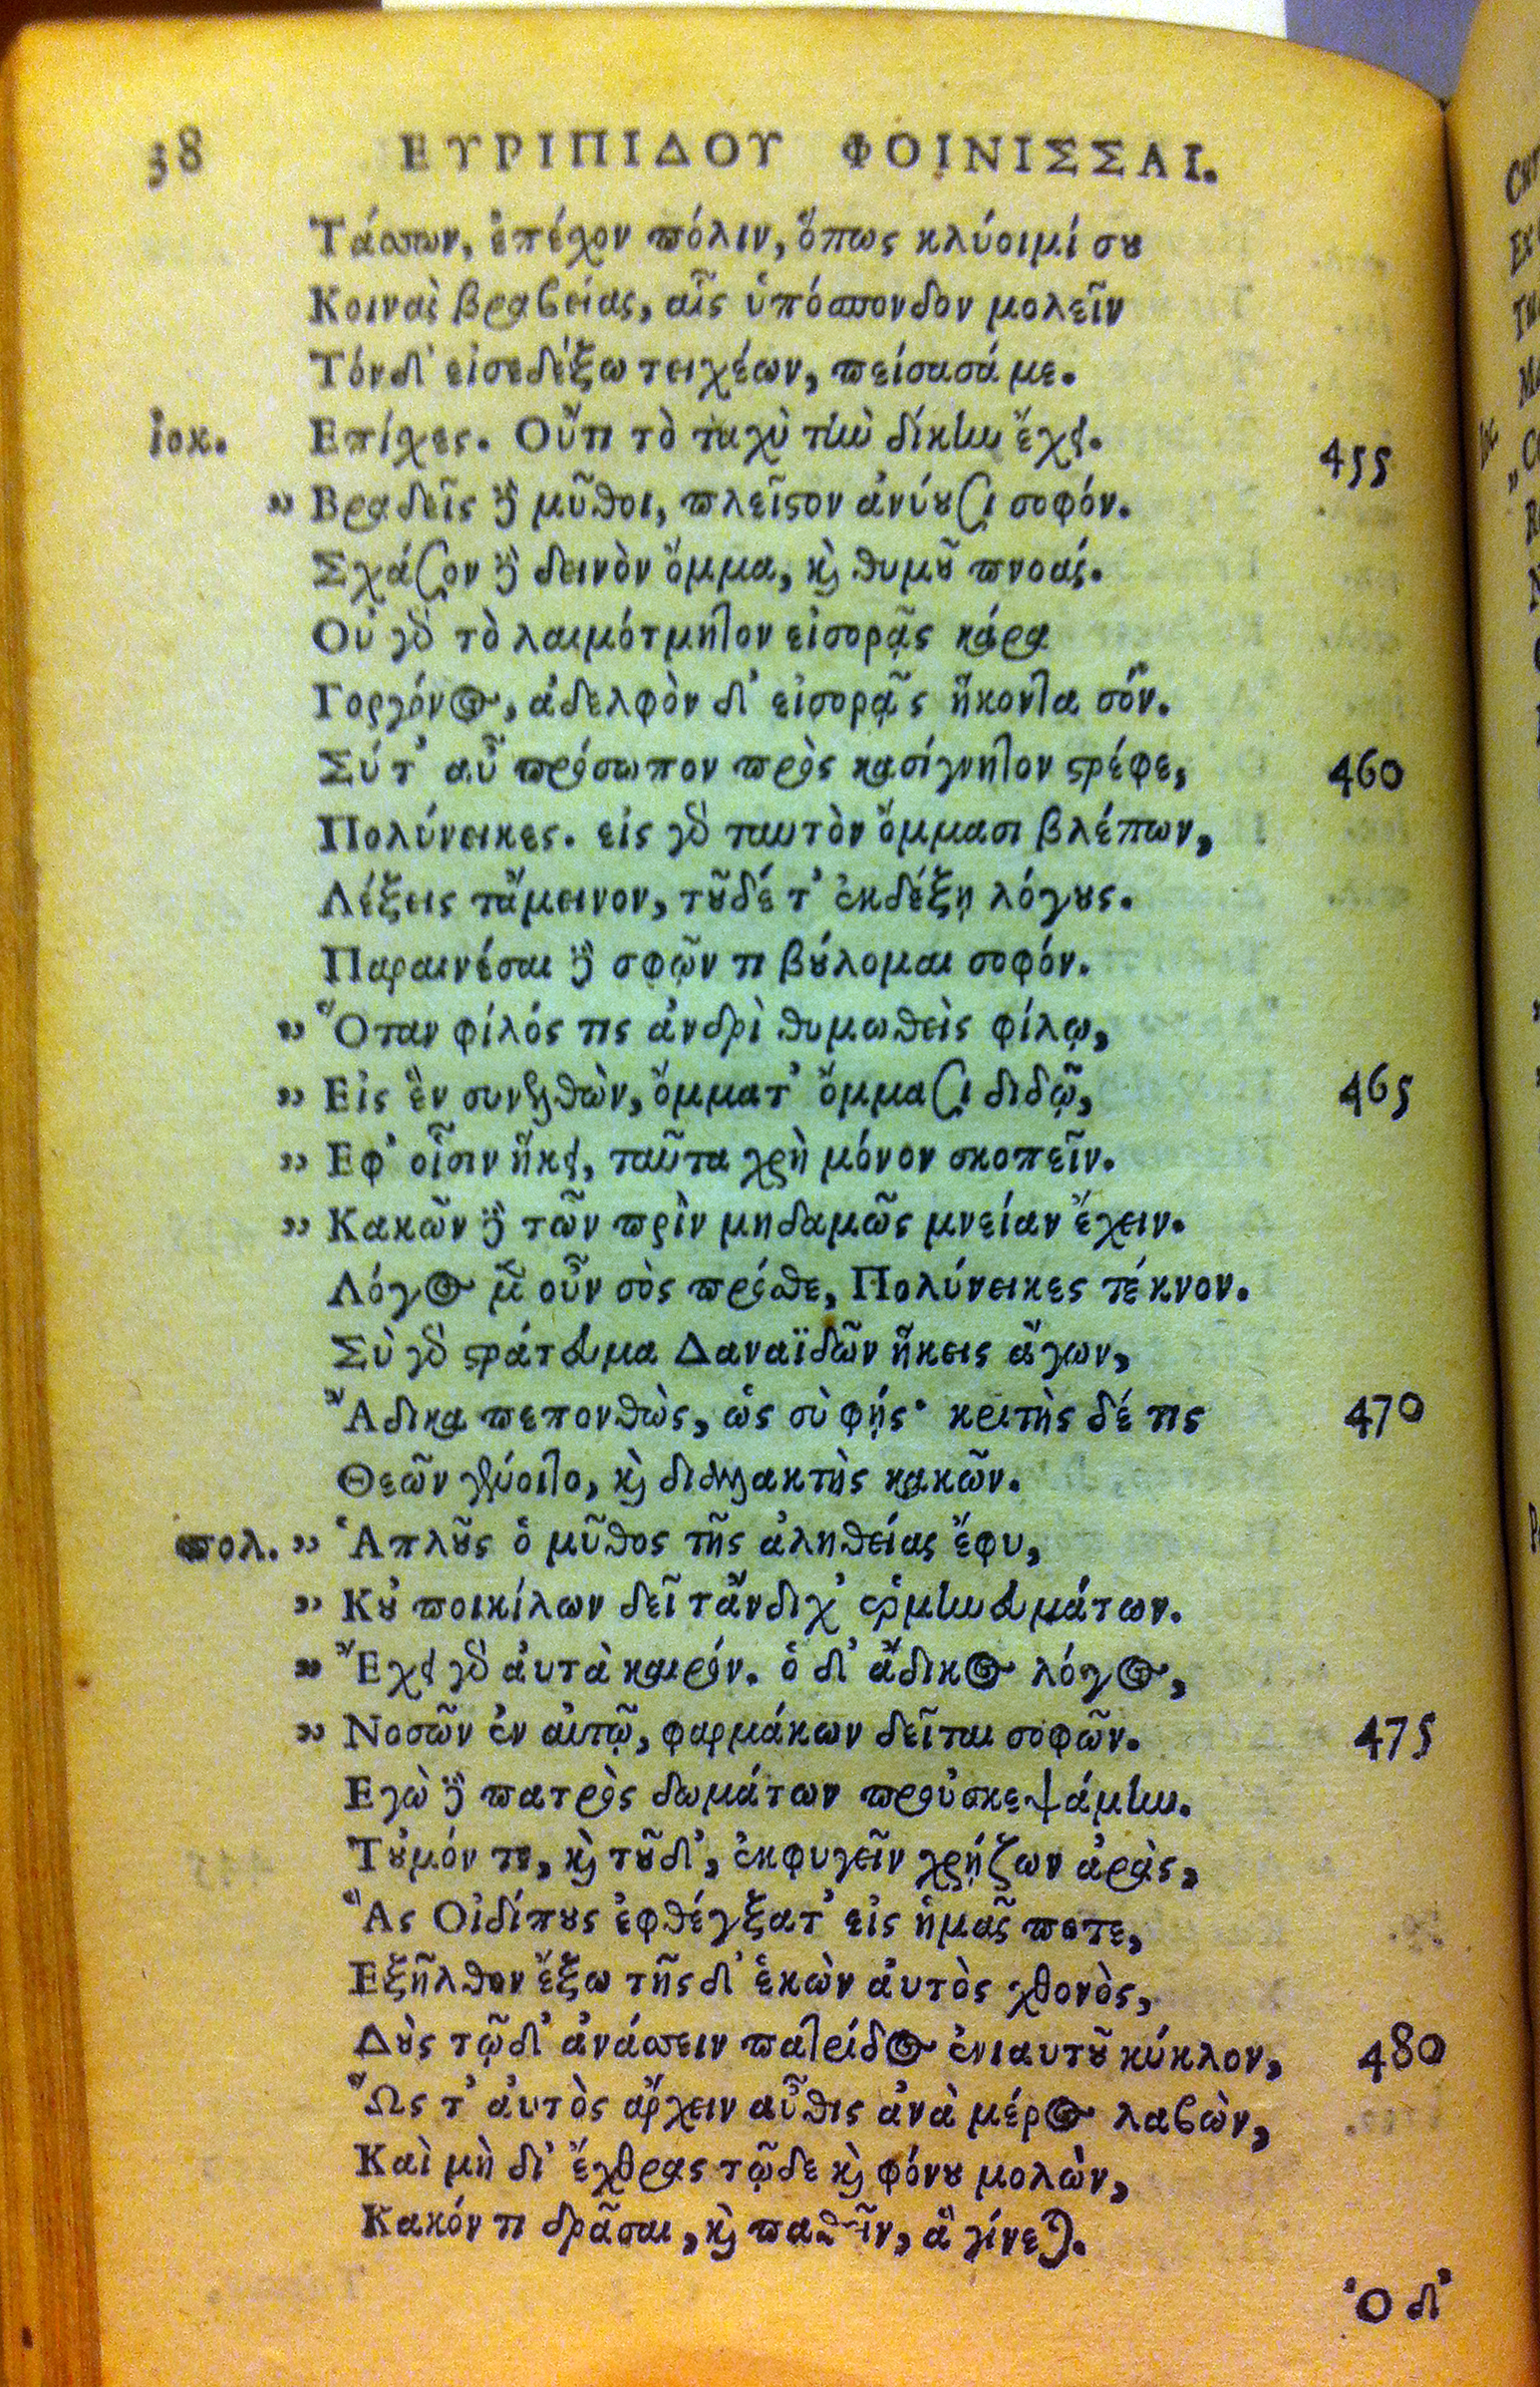 38 ΕΥΡΙΠΙΔΟΥ ΦΟΙΝΙΣΣΑΙ.
Τάσσων, ἐπέχον πόλιν, ὅπως κλύοιμί σου
Κοινὰς βραβείας, αἷς ὑπόσπονδον μολεῖν
Τόνδ' εἰσεδέξω τειχέων, πείσασά με.
ἰοκ. Επίχες. Οὔτι τὸ ταχὺ τὴν δίκην ἔχει. 455
" Βραδεῖς δὲ μῦθοι, πλεῖστον ἀνύουσι σοφόν.
Σχάσον δὲ δεινὸν ὄμμα, καὶ θυμοῦ πνοάς.
Οὐ γὰρ τὸ λαιμότμητον εἰσορᾷς κάρα
Γοργόνος, ἀδελφὸν δ' εἰσορᾷς ἥκοντα σόν.
Σύ τ' αὖ πρόσωπον πρὸς κασίγνητον στρέφε, 460
Πολύνεικες. εἰς γὰρ ταυτὸν ὄμμασι βλέπων,
Λέξεις τἄμεινον, τοῦδέ τ' ἐκδέξῃ λόγους.
Παραινέσαι δὲ σφῷν τι βούλομαι σοφόν.
" Ὅταν φίλός τις ἀνδρὶ θυμωθεὶς φίλῳ,
" Εἰς ἓν συνελθὼν, ὄμματ' ὄμμασι διδῷ, 465
" Εφ' οἷσιν ἥκει, ταῦτα χρὴ μόνον σκοπεῖν.
" Κακῶν δὲ τῶν πρὶν μηδαμῶς μνείαν ἔχειν.
Λόγος μὲν οὖν σὸς πρόσθε, Πολύνεικες τέκνον.
Σὺ γὰρ στράτευμα Δαναϊδῶν ἥκεις ἄγων,
Ἄδικα πεπονθὼς, ὡς σὺ φῄς· κριτὴς δέ τις 470
Θεῶν γένοιτο, καὶ διαλλακτὴς κακῶν.
πολ. " Ἁπλοῦς ὁ μῦθος τῆς ἀληθείας ἔφυ,
" Κοὐ ποικίλων δεῖ τἄνδιχ' ἑρμηνευμάτων.
" Ἔχει γὰρ ἀυτὰ καιρόν. ὁ δ' ἄδικος λόγος,
" Νοσῶν ἐν αὑτῷ, φαρμάκων δεῖται σοφῶν. 475
Εγὼ δὲ πατρὸς δωμάτων προὐσκεψάμην.
Τοὐμόν τε, καὶ τοῦδ', ἐκφυγεῖν χρῄζων ἀρὰς,
Ἃς Οἰδίπους ἐφθέγξατ' εἰς ἡμᾶς ποτε,
Εξῆλθον ἔξω τῆσδ' ἑκὼν ἀυτὸς χθονὸς,
Δοὺς τῷδ' ἀνάσσειν πατρίδος ἐνιαυτοῦ κύκλον, 480
Ὥς τ' ἀυτὸς ἄρχειν αὖθις ἀνὰ μέρος λαβὼν,
Καὶ μὴ δι' ἔχθρας τῷδε καὶ φόνου μολὼν,
Κακόν τι δρᾶσαι, καὶ παθεῖν, ἃ γίνεται.
Ὁ δ'